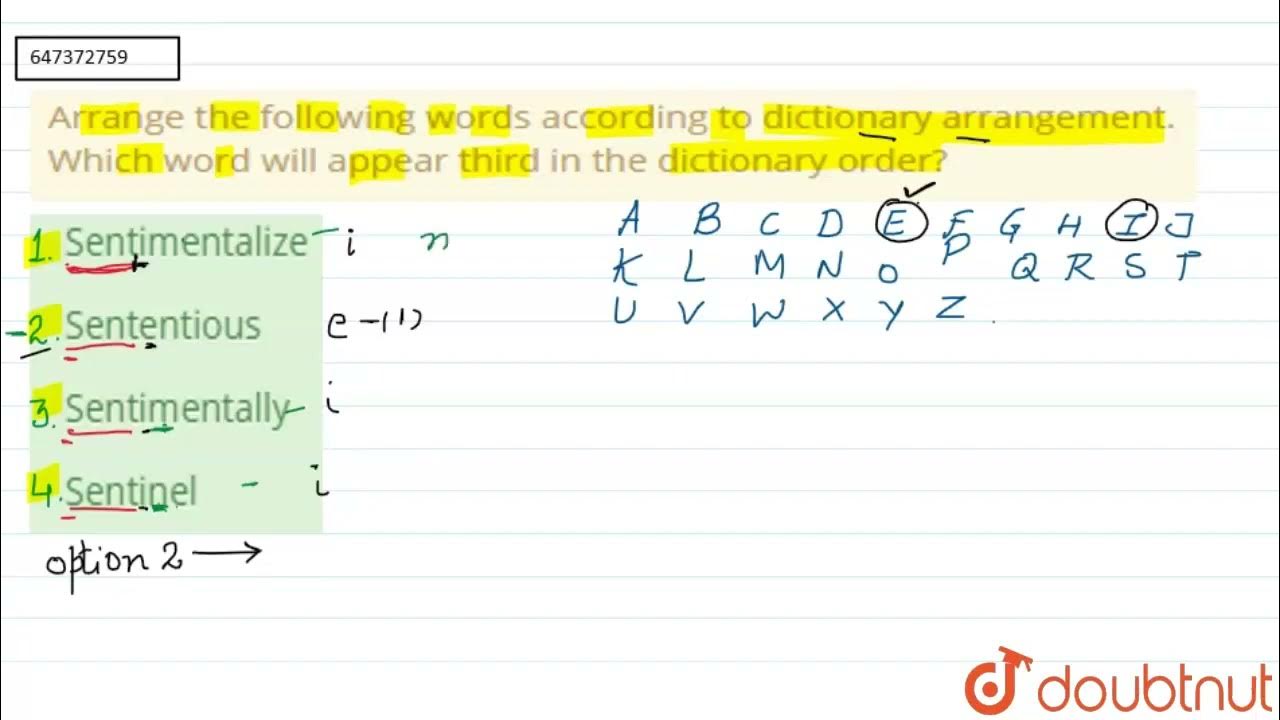 647372759
Arrange the following words according to dictionary arrangement.
Which word will appear third in the dictionary order?
A B C D E F G H I J
1. Sentimentalize - i n
K L M N O P Q R S T
2. Sententious e -(1)
U V W X Y Z
3. Sentimentally - i
4. Sentinel - i
option 2 →
doubtnut